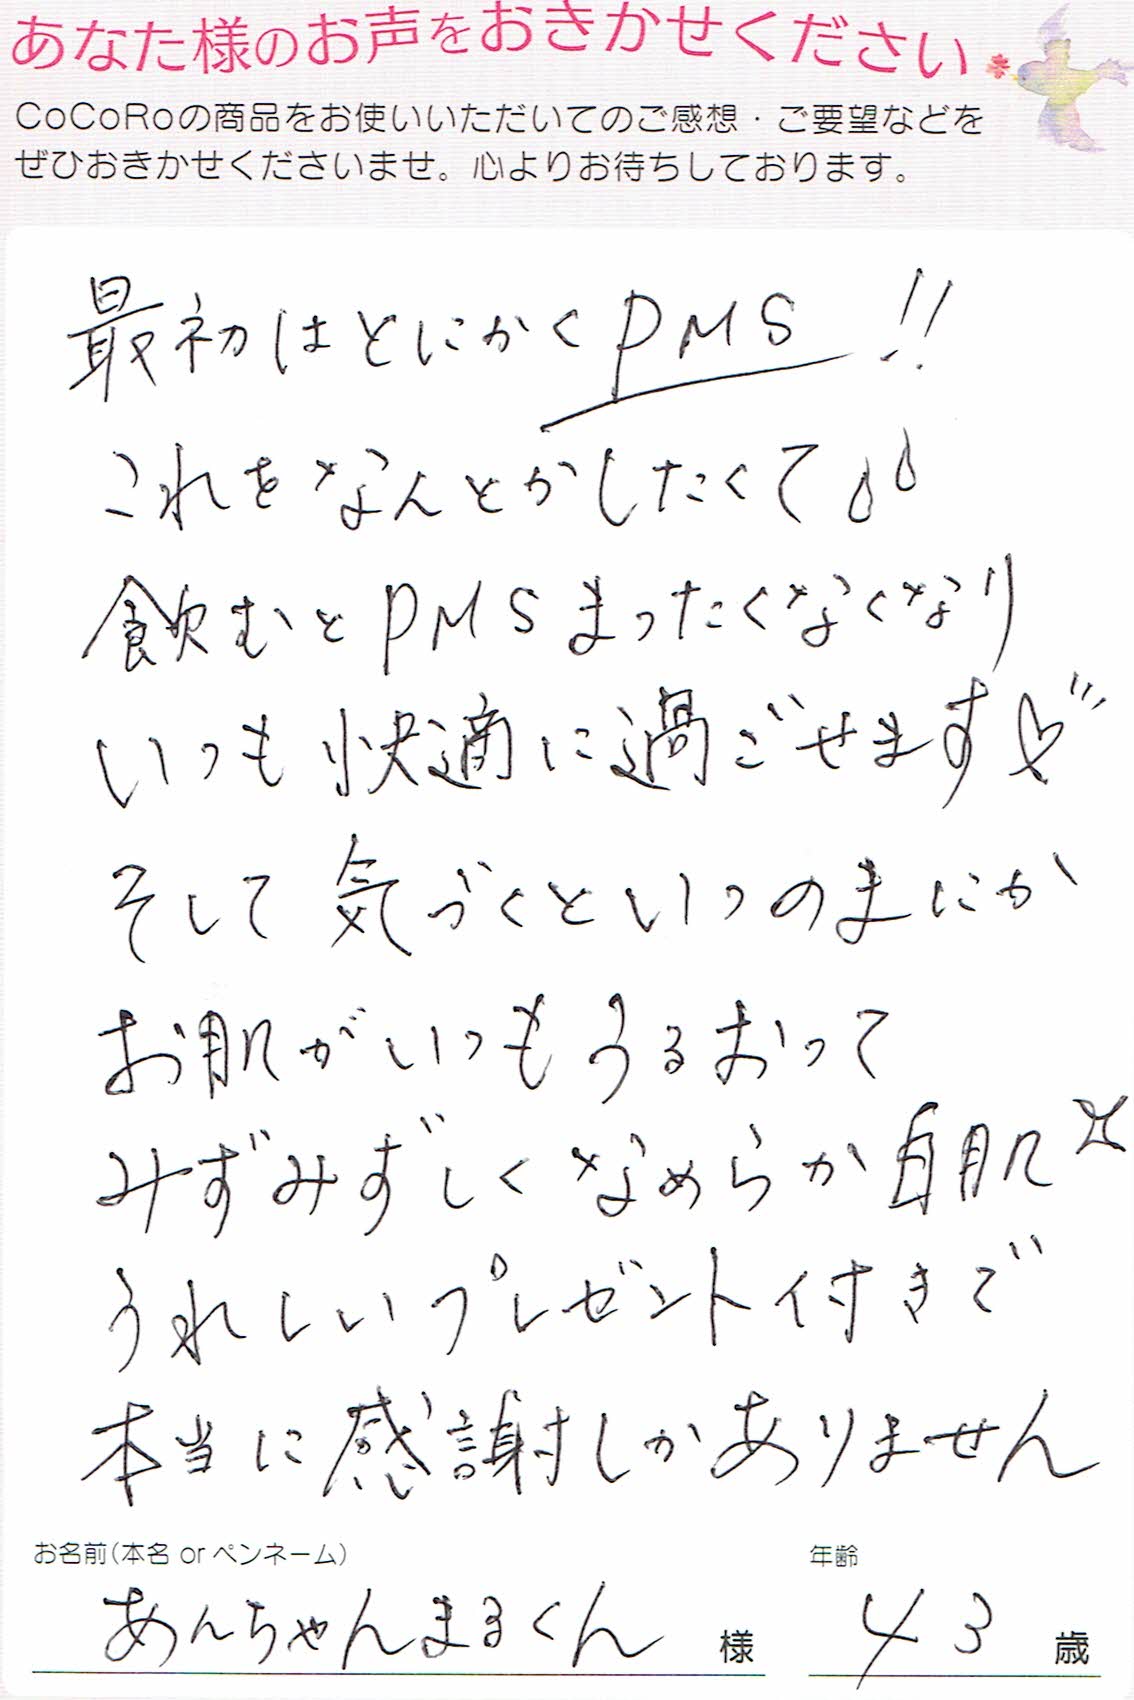 あなた様のお声をおきかせください
CoCoRoの商品をお使いいただいてのご感想・ご要望などを
ぜひおきかせくださいませ。心よりお待ちしております。
最初はとにかくPMS!!
これをなんとかしたくて
飲むとPMSまったくなくなり
いつも快適に過ごせます♡
そして気づくといつのまにか
お肌がいつもうるおって
みずみずしくなめらか自肌
うれしいプレゼント付きで
本当に感謝しかありません
お名前(本名 or ペンネーム) 年齢
あんちゃんまるくん 様 43 歳